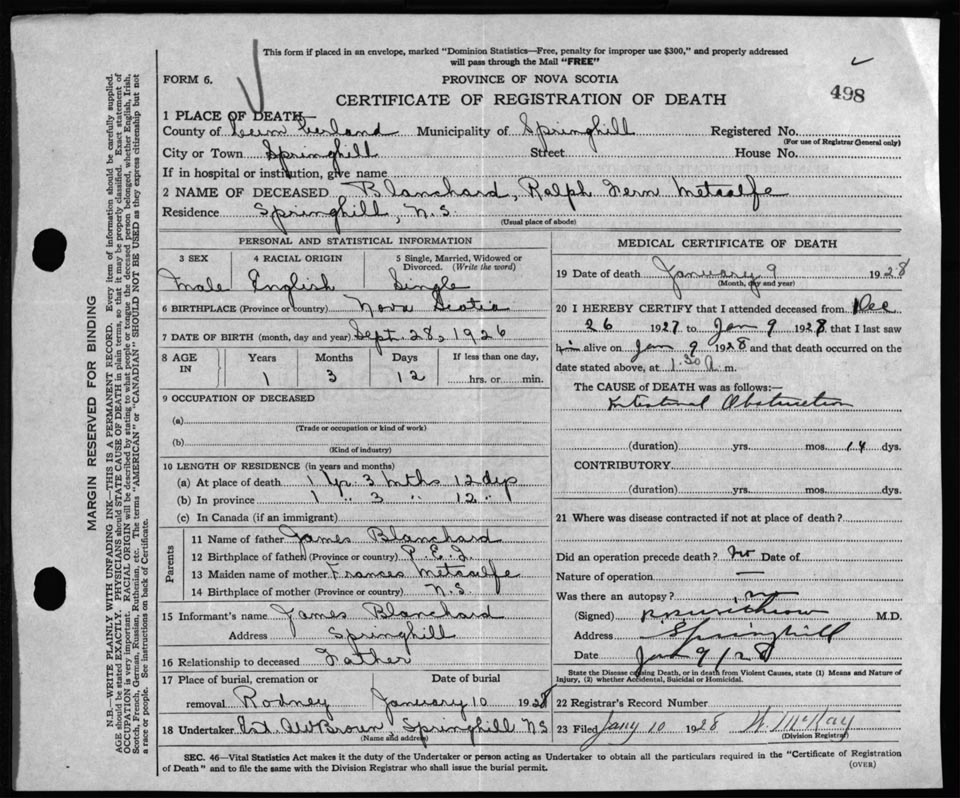 This form if placed in an envelope, marked "Dominion Statistics—Free, penalty for improper use $300," and properly addressed
will pass through the Mail "FREE"
FORM 6.
PROVINCE OF NOVA SCOTIA
498
CERTIFICATE OF REGISTRATION OF DEATH
1 PLACE OF DEATH—
County of Cumberland Municipality of Springhill Registered No.
(For use of Registrar General only)
City or Town Springhill Street House No.
If in hospital or institution, give name
2 NAME OF DECEASED Blanchard, Ralph Fern Metcalfe
Residence Springhill, N.S.
(Usual place of abode)
PERSONAL AND STATISTICAL INFORMATION
3 SEX 4 RACIAL ORIGIN 5 Single, Married, Widowed or
Divorced. (Write the word)
Male English Single
6 BIRTHPLACE (Province or country) Nova Scotia
7 DATE OF BIRTH (month, day and year) Sept. 28, 1926
8 AGE IN Years Months Days If less than one day,
1 3 12 hrs. or min.
9 OCCUPATION OF DECEASED
(a)
(Trade or occupation or kind of work)
(b)
(Kind of industry)
10 LENGTH OF RESIDENCE (in years and months)
(a) At place of death 1 yr. 3 mths 12 dys
(b) In province 1 " 3 " 12 "
(c) In Canada (if an immigrant)
Parents
11 Name of father James Blanchard
12 Birthplace of father (Province or country) P.E.I.
13 Maiden name of mother Frances Metcalfe
14 Birthplace of mother (Province or country) N.S.
15 Informant's name James Blanchard
Address Springhill
16 Relationship to deceased Father
17 Place of burial, cremation or Date of burial
removal Rodney January 10 1928
18 Undertaker Brown, Springhill NS
(Name and address)
MEDICAL CERTIFICATE OF DEATH
19 Date of death January 9 1928
(Month, day and year)
20 I HEREBY CERTIFY that I attended deceased from Dec
26 1927 to Jan 9 1928 that I last saw
him alive on Jan 9 1928 and that death occurred on the
date stated above, at 1.30 A m.
The CAUSE of DEATH was as follows:—
Intestinal Obstruction
(duration) yrs. mos. 14 dys.
CONTRIBUTORY
(duration) yrs. mos. dys.
21 Where was disease contracted if not at place of death?
Did an operation precede death? No Date of
Nature of operation —
Was there an autopsy? no
(Signed) M.D.
Address Springhill
Date Jan 9/28
State the Disease causing Death, or in death from Violent Causes, state (1) Means and Nature of
Injury, (2) whether Accidental, Suicidal or Homicidal.
22 Registrar's Record Number
23 Filed Jany 10 1928 McKay
(Division Registrar)
SEC. 46—Vital Statistics Act makes it the duty of the Undertaker or person acting as Undertaker to obtain all the particulars required in the "Certificate of Registration
of Death" and to file the same with the Division Registrar who shall issue the burial permit. (OVER)
MARGIN RESERVED FOR BINDING
N.B.—WRITE PLAINLY WITH UNFADING INK—THIS IS A PERMANENT RECORD. Every item of information should be carefully supplied.
AGE should be stated EXACTLY. PHYSICIANS should STATE CAUSE OF DEATH in plain terms, so that it may be properly classified. Exact statement of
OCCUPATION is very important. RACIAL ORIGIN will be described by stating to what people or tongue the deceased person belonged, whether English, Irish,
Scotch, French, German, Russian, Ruthenian, etc. The terms "AMERICAN" or "CANADIAN" SHOULD NOT BE USED as they express citizenship but not
a race or people. See instructions on back of Certificate.